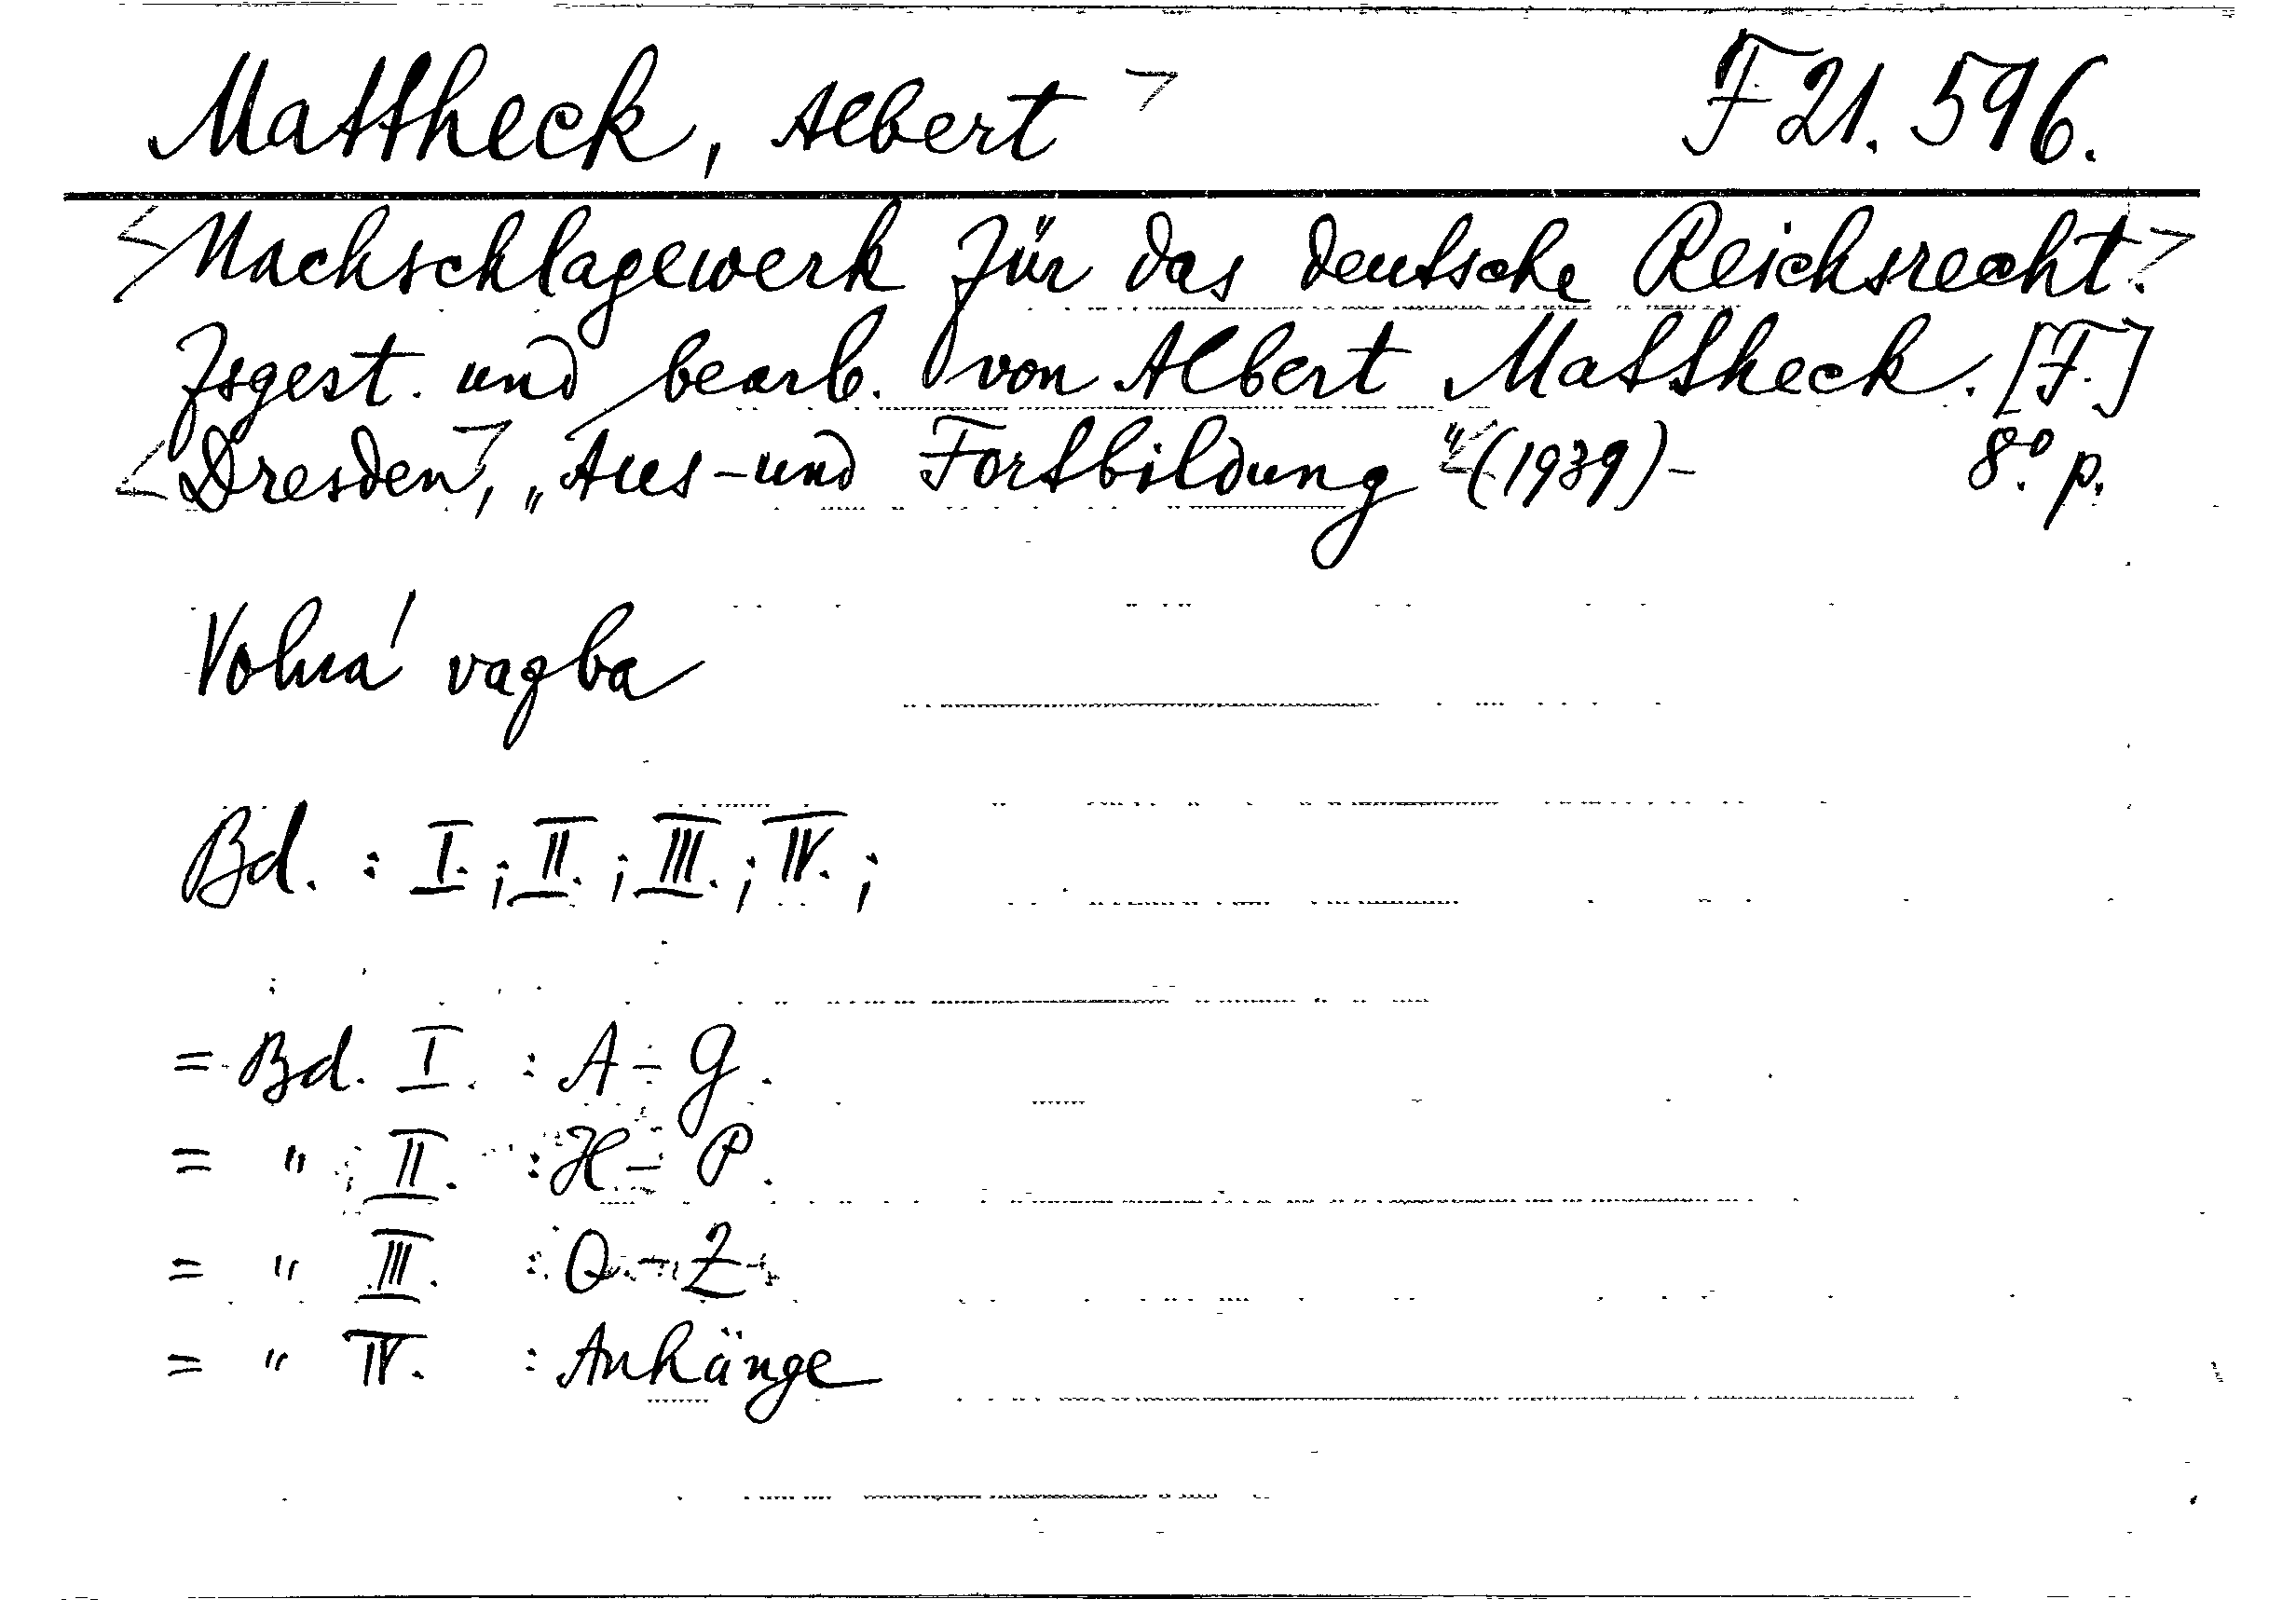 Mattheck, Albert > F 21. 596.
<Nachschlagewerk für das deutsche Reichsrecht.>
Zsgest. und bearb. von Albert Mattheck. [F.]
<Dresden>, „Aus- und Fortbildung" (1939)- 8°. p.
Volná vazba
Bd. : I. ; II. ; III. ; IV. ;
= Bd. I. : A - G.
= " II. : H - P.
= " III. : Q - Z.
= " IV. : Anhänge